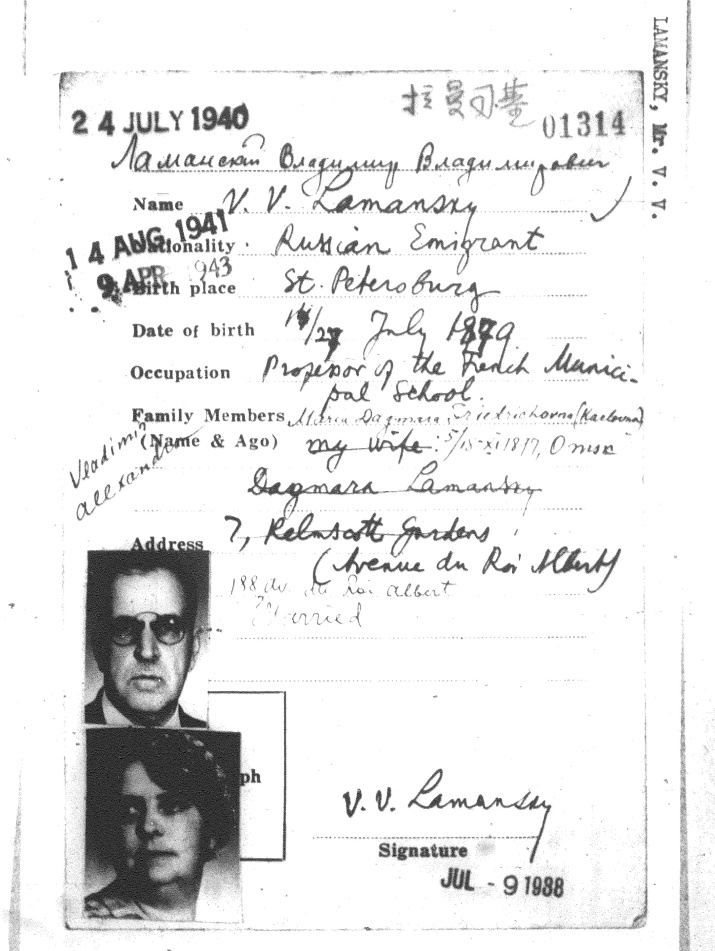 LAMANSKY, Mr. V. V.
24 JULY 1940
01314
Ламанский Владимир Владимирович
Name V. V. Lamansky
14 AUG 1941
Nationality Russian Emigrant
9 APR 1943
Birth place St. Petersburg
Date of birth /27 July 1879
Occupation Professor of the French Munici-
pal School.
Family Members Maria Dagmara Friedrichovna (Karlovna)
(Name & Ago) my wife Omsk
Vladimir
Alexandr
Dagmara Lamansky
Address 7, Kelmscott Gardens
(Avenue du Roi Albert)
188 av. du Roi Albert
Married
ph
V. V. Lamansky
Signature
JUL - 9 1938